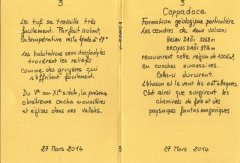 3
Le tuf se travaille très
facilement. Parfait isolant,
la température reste froide à 19°.
Les habitations semi-troglodytes
trouèrent les reliefs
comme des gruyères qui
s'effritent facilement.
Du Ve au XIe siècle, la chrétienne
cacha monastères
et églises dans ces vallées.
27 Mars 2014
3
Cappadoce
Formation géologique particulière
Les cendres de deux volcans
3268 m
3916 m
recouvrirent cette région
en couches successives.
Celles-ci durcirent.
L'érosion et le vent les ont allégrées.
C'est ainsi que surgirent les
cheminées de fée et des
paysages fantasmagoriques.
27 Mars 2014